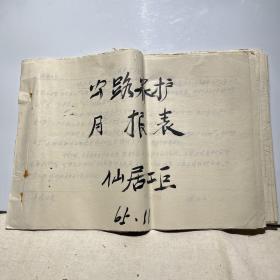 公路养护
月报表
仙居工区
65.11